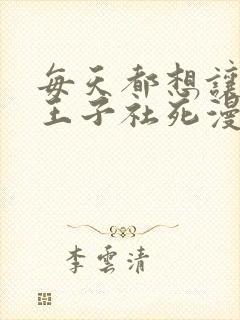 每天都想讓
王子社死漫
李雲清